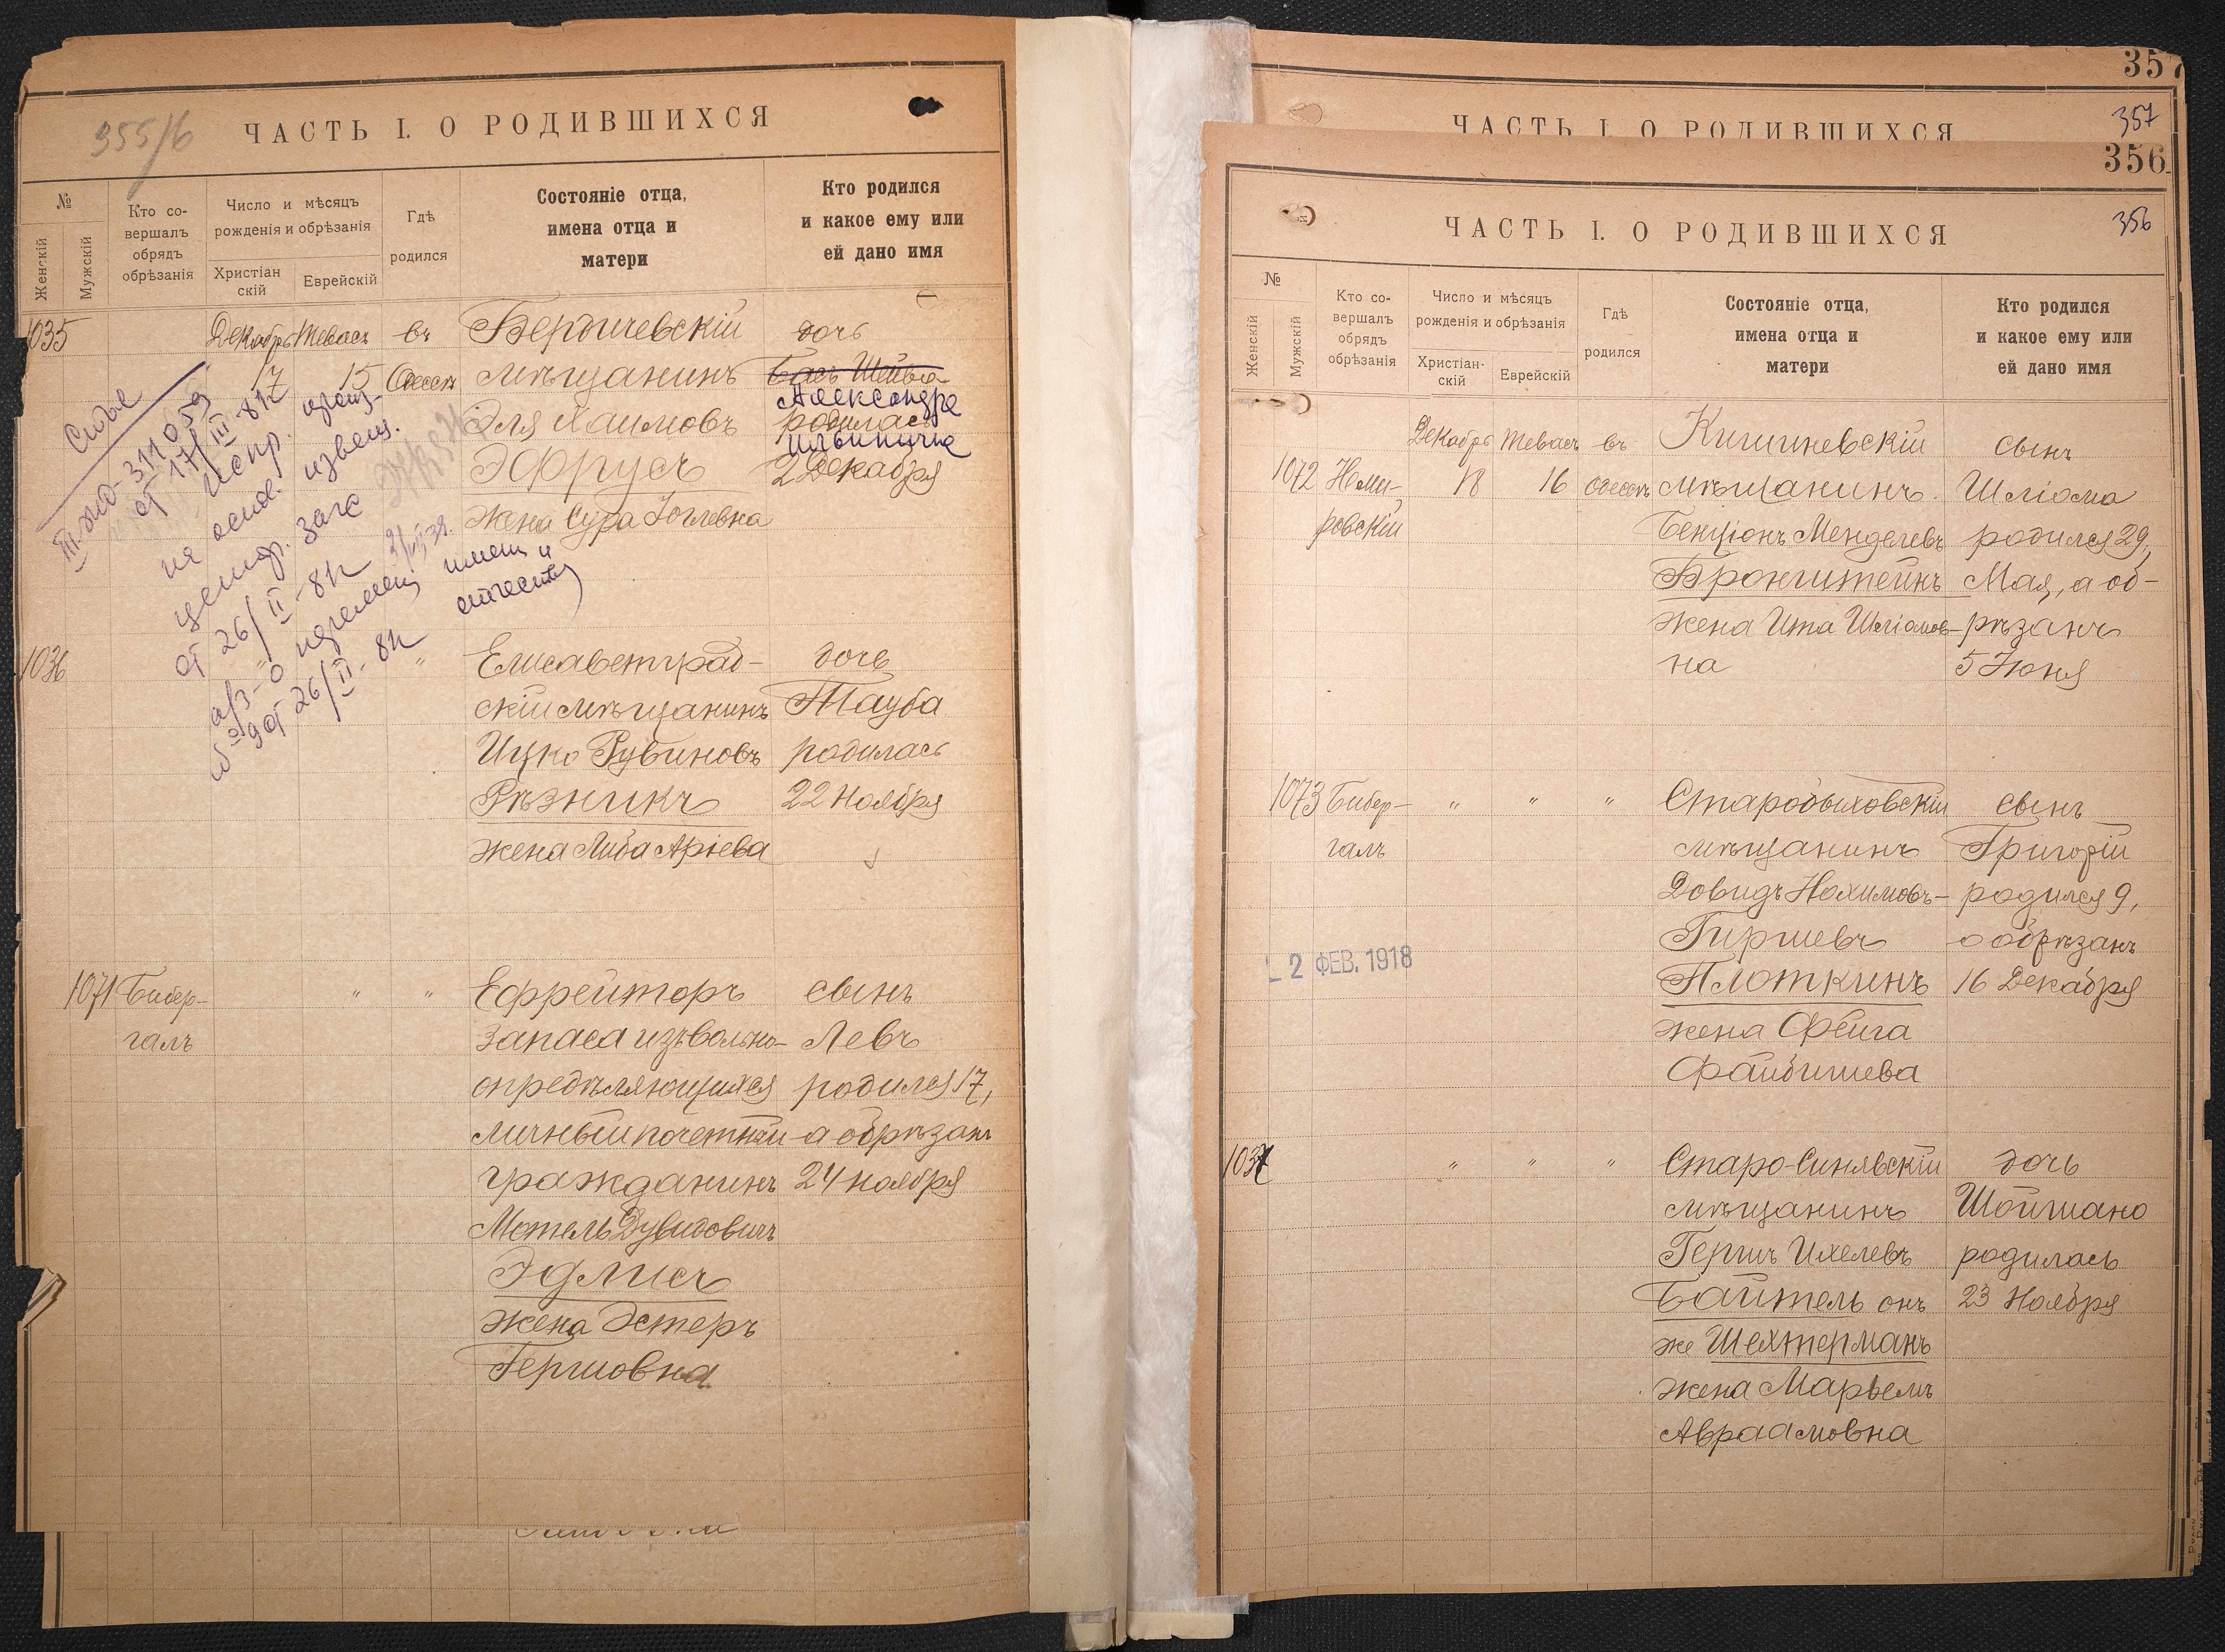 355/б
ЧАСТЬ I. О РОДИВШИХСЯ
№
Женскій
Мужскій
Кто со-
вершалъ
обрядъ
обрѣзанія
Число и мѣсяцъ
рожденія и обрѣзанія
Христіан
скій
Еврейскій
Гдѣ
родился
Состояніе отца,
имена отца и
матери
Кто родился
и какое ему или
ей дано имя
1035
Декабрь Тевасъ въ Бердичевскій дочь
17 15 Одессѣ мѣщанинъ Бась Шейва
Александра
Эля Хаимовъ родилась
Ильинична
Эфрусъ 2 Декабря
жена Сура
1036 " Елисаветград- дочь
скій мѣщанинъ Тауба
Ицко Рувиновъ родилась
Рѣзникъ 22 Ноября
жена Либа Арiева
1071 Бибер- " " Ефрейторъ сынъ
галъ запаса изъ вольно- Левъ
опредѣляющихся родился 17,
личный почетный а обрѣзанъ
гражданинъ 24 ноября
Мотель Дувидовичъ
Эдлисъ
жена Эстеръ
Гершовна
Судье
от 17/III-81г
Испр.
на основ. извещ.
центр. загс
от 26/II-81г
а/з-о
имени и
отчества
от 26/II-81г
357
ЧАСТЬ I. О РОДИВШИХСЯ
356
356
ЧАСТЬ I. О РОДИВШИХСЯ
№
Женскій
Мужскій
Кто со-
вершалъ
обрядъ
обрѣзанія
Число и мѣсяцъ
рожденія и обрѣзанія
Христіан-
скій
Еврейскій
Гдѣ
родился
Состояніе отца,
имена отца и
матери
Кто родился
и какое ему или
ей дано имя
Декабрь Тевасъ въ Кишиневскій сынъ
1072 Неми- 18 16 Одессѣ мѣщанинъ Шліома
ровскій Бенціонъ Менделевъ родился 29,
Бронштейнъ Мая, а об-
жена Ита Шліомов- рѣзанъ
на 5 Іюня
1073 Бибер- " " " Старобыховскій сынъ
галъ мѣщанинъ Григорій
Довидъ Нохимовъ- родился 9,
Гиршевъ а обрѣзанъ
2 ФЕВ. 1918
Плоткинъ 16 Декабря
жена Фейга
Файбишева
1037 " " " Старо-Синявскій дочь
мѣщанинъ Шойшана
Гершъ Ихелевъ родилась
Байтель онъ 23 Ноября
же Шехтерманъ
жена Марьемъ
Авраамовна